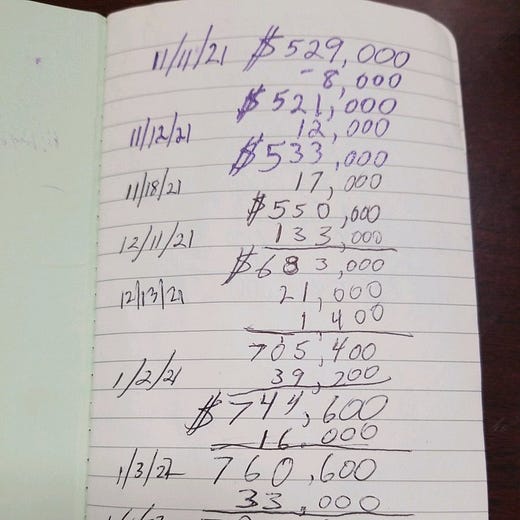 11/11/21 $529,000
-8,000
$521,000
11/12/21 12,000
$533,000
11/18/21 17,000
$550,000
12/11/21 133,000
$683,000
12/13/21 21,000
1,400
705,400
1/2/21 39,200
$744,600
16,000
1/3/22 760,600
33,000